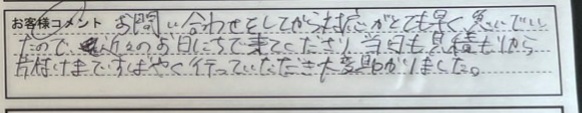 お客様コメント お問い合わせをしてから対応がとても早く急いでい
たので、近々のお日にちで来てくださり、当日も見積もりから
片付けまですばやく行っていただき大変助かりました。